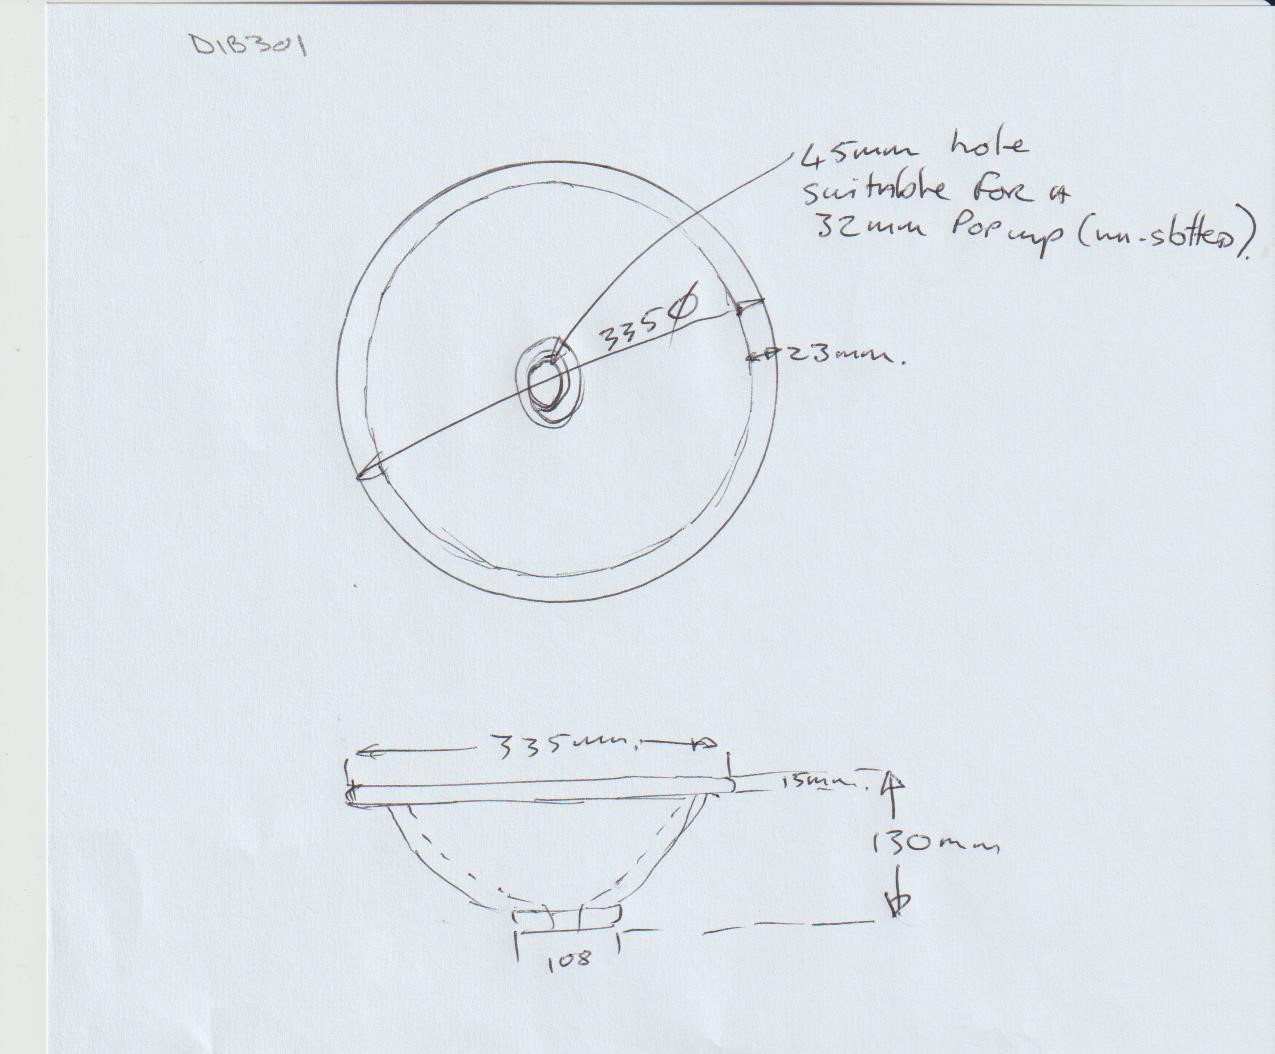 DIB301
45mm hole
suitable for a
32mm Pop up (un-slotted).
335Ø
23mm.
335mm.
15mm.
130mm
108